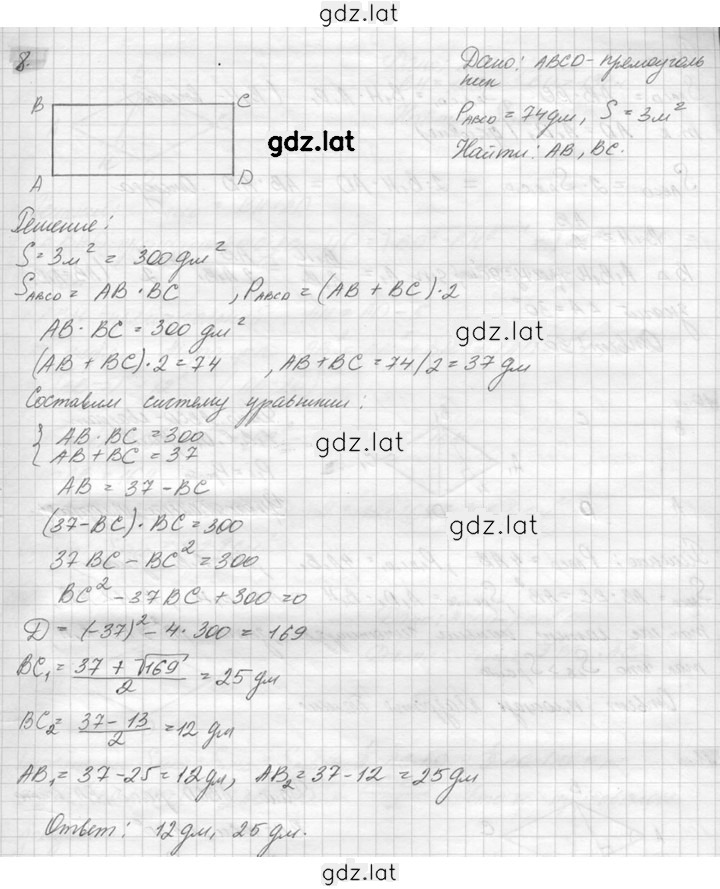 gdz.lat
8.
Дано: ABCD - прямоуголь
ник
P_ABCD = 74 дм, S = 3 м²
Найти: AB, BC.
B C
gdz.lat
A D
Решение:
S = 3 м² = 300 дм²
S_ABCD = AB · BC , P_ABCD = (AB + BC) · 2
AB · BC = 300 дм²
gdz.lat
(AB + BC) · 2 = 74 , AB + BC = 74/2 = 37 дм
Составим систему уравнении:
{ AB · BC = 300
AB + BC = 37
gdz.lat
AB = 37 - BC
(37 - BC) · BC = 300
gdz.lat
37 BC - BC² = 300
BC² - 37 BC + 300 = 0
D = (-37)² - 4 · 300 = 169
BC₁ = (37 + √169)/2 = 25 дм
gdz.lat
BC₂ = (37 - 13)/2 = 12 дм
AB₁ = 37 - 25 = 12 дм, AB₂ = 37 - 12 = 25 дм
Ответ: 12 дм, 25 дм.
gdz.lat
gdz.lat